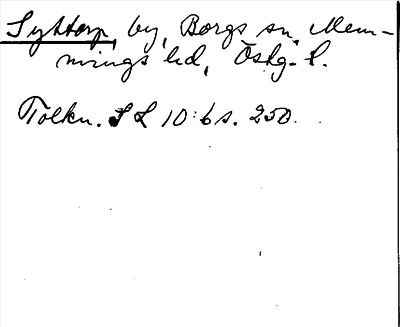 Sylttorp, by, Borgs sn, Mem-
mings hd, Östg. l.
Tolkn. SL 10:6 s. 250.